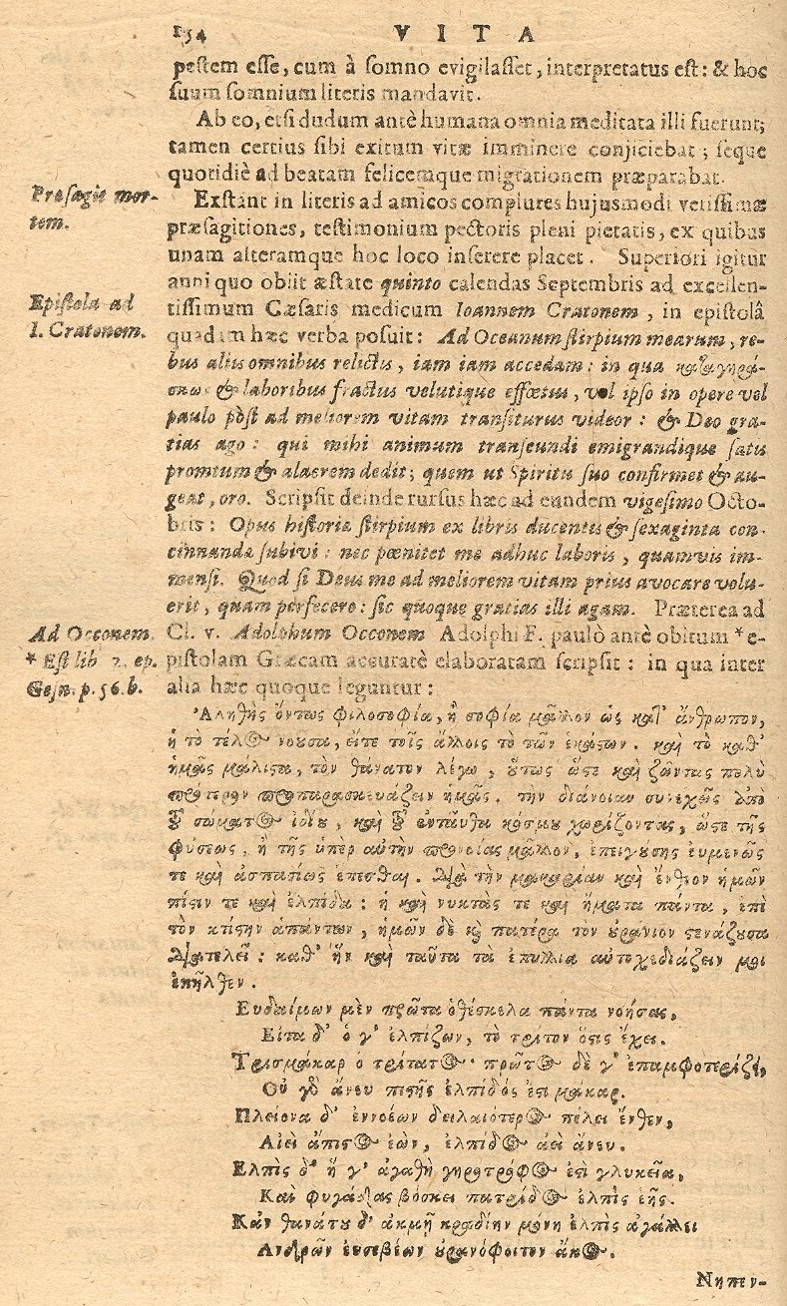 154 VITA
pestem esse, cum à somno evigilasset, interpretatus est: & hoc
suum somnium literis mandavit.
Ab eo, etsi dudum antè humana omnia meditata illi fuerunt;
tamen certius sibi exitum vitæ imminere conjiciebat; seque
quotidiè ad beatam felicemque migrationem præparabat.
Præsagit mor-
tem.
Exstant in literis ad amicos complures hujusmodi verissimæ
præsagitiones, testimonium pectoris pleni pietatis, ex quibus
unam alteramque hoc loco inserere placet. Superiori igitur
anni quo obiit æstate quinto calendas Septembris ad excellen-
Epistola ad
I. Cratonem.
tissimum Cæsaris medicum Ioannem Cratonem, in epistolâ
quadam hæc verba posuit: Ad Oceanum stirpium mearum, re-
bus aliis omnibus relictis, iam iam accedam: in qua καταγηρά-
σκων & laboribus fractus velutique effœtus, vel ipso in opere vel
paulo pòst ad meliorem vitam transiturus videor: & Deo gra-
tias ago: qui mihi animum transeundi emigrandique satis
promtum & alacrem dedit; quem ut Spiritu suo confirmet & au-
geat, oro. Scripsit deinde rursus hæc ad eundem vigesimo Octo-
bris: Opus historiæ stirpium ex libris ducentis & sexaginta con-
cinnandæ subivi: nec pœnitet me adhuc laboris, quamvis im-
mensi. Quod si Deus me ad meliorem vitam prius avocare volu-
erit, quam perfecero: sic quoque gratias illi agam. Præterea ad
Ad Occonem.
* Est lib. 2. ep.
Gesn. p. 56. b.
Cl. v. Adolphum Occonem Adolphi F. paulò antè obitum * e-
pistolam Græcam accuratè elaboratam scripsit: in qua inter
alia hæc quoque leguntur:
Ἀληθὴς ὄντως φιλοσοφία, ἢ σοφία μᾶλλον ὡς κατ' ἄνθρωπον,
ἡ τὸ τέλος νοῦσα, εἴτε τοῖς ἄλλοις τὸ τῶν ἑκάστων. καὶ τὸ καθ'
ἡμᾶς μάλιστα, τὸν θάνατον λέγω, οὕτως ὥστε καὶ ζῶντας πολὺ
πρότερον προπαρασκευάζειν ἡμᾶς. τὴν διάνοιαν συνεχῶς ἀπὸ
τοῦ σώματος ἰδίου, καὶ τοῦ ἐνταῦθα κόσμου χωρίζοντας, ὥστε τῆς
φύσεως, ἢ τῆς ὑπὲρ αὐτὴν προνοίας μᾶλλον, ἐπειγούσης εὐμενῶς
τε καὶ ἀσπασίως ἕπεσθαι. Διὰ τὴν μακαρίαν καὶ ἔνθεον ἡμῶν
πίστιν τε καὶ ἐλπίδα: ἡ καὶ νυκτάς τε καὶ ἤματα πάντα, ἐπὶ
τὸν κτίστην ἁπάντων, ἡμῶν δὲ καὶ πατέρα τὸν οὐράνιον στενάζουσα
διατελεῖ: καθ' ἣν καὶ ταῦτα τὰ ἐπύλλια αὐτοσχεδιάζειν μοι
ἐπῆλθεν.
Εὐδαίμων μὲν πρῶτα ὁ θέσκελα πάντα νοήσας,
Εἶτα δ' ὅ γ' ἐλπίζων, τὸ τρίτον ὅστις ἔχει.
Τρισμάκαρ ὁ τρίτατος· πρῶτος δέ γ' ἐπαμφοτερίζει,
Οὐ γὰρ ἄνευ πιστῆς ἐλπίδος ἐστὶ μάκαρ.
Πλείονα δ' ἐννοέων δειλαιότερος πέλει ἔνθεν,
Αἰεὶ ἄπιστος ἐὼν, ἐλπίδος αἰεὶ ἄνευ.
Ἐλπὶς δ' ἥ γ' ἀγαθὴ γηροτρόφος ἐστὶ γλυκεῖα,
Καὶ φυγάδας βόσκει πατρίδος ἐλπὶς ἑῆς.
Κἀν θανάτου δ' ἀκμῇ κραδίην μόνη ἐλπὶς ἀγάλλει
Ἀνδρῶν εὐσεβέων οὐρανόφοιτον ἄκος.
Νηπεν-